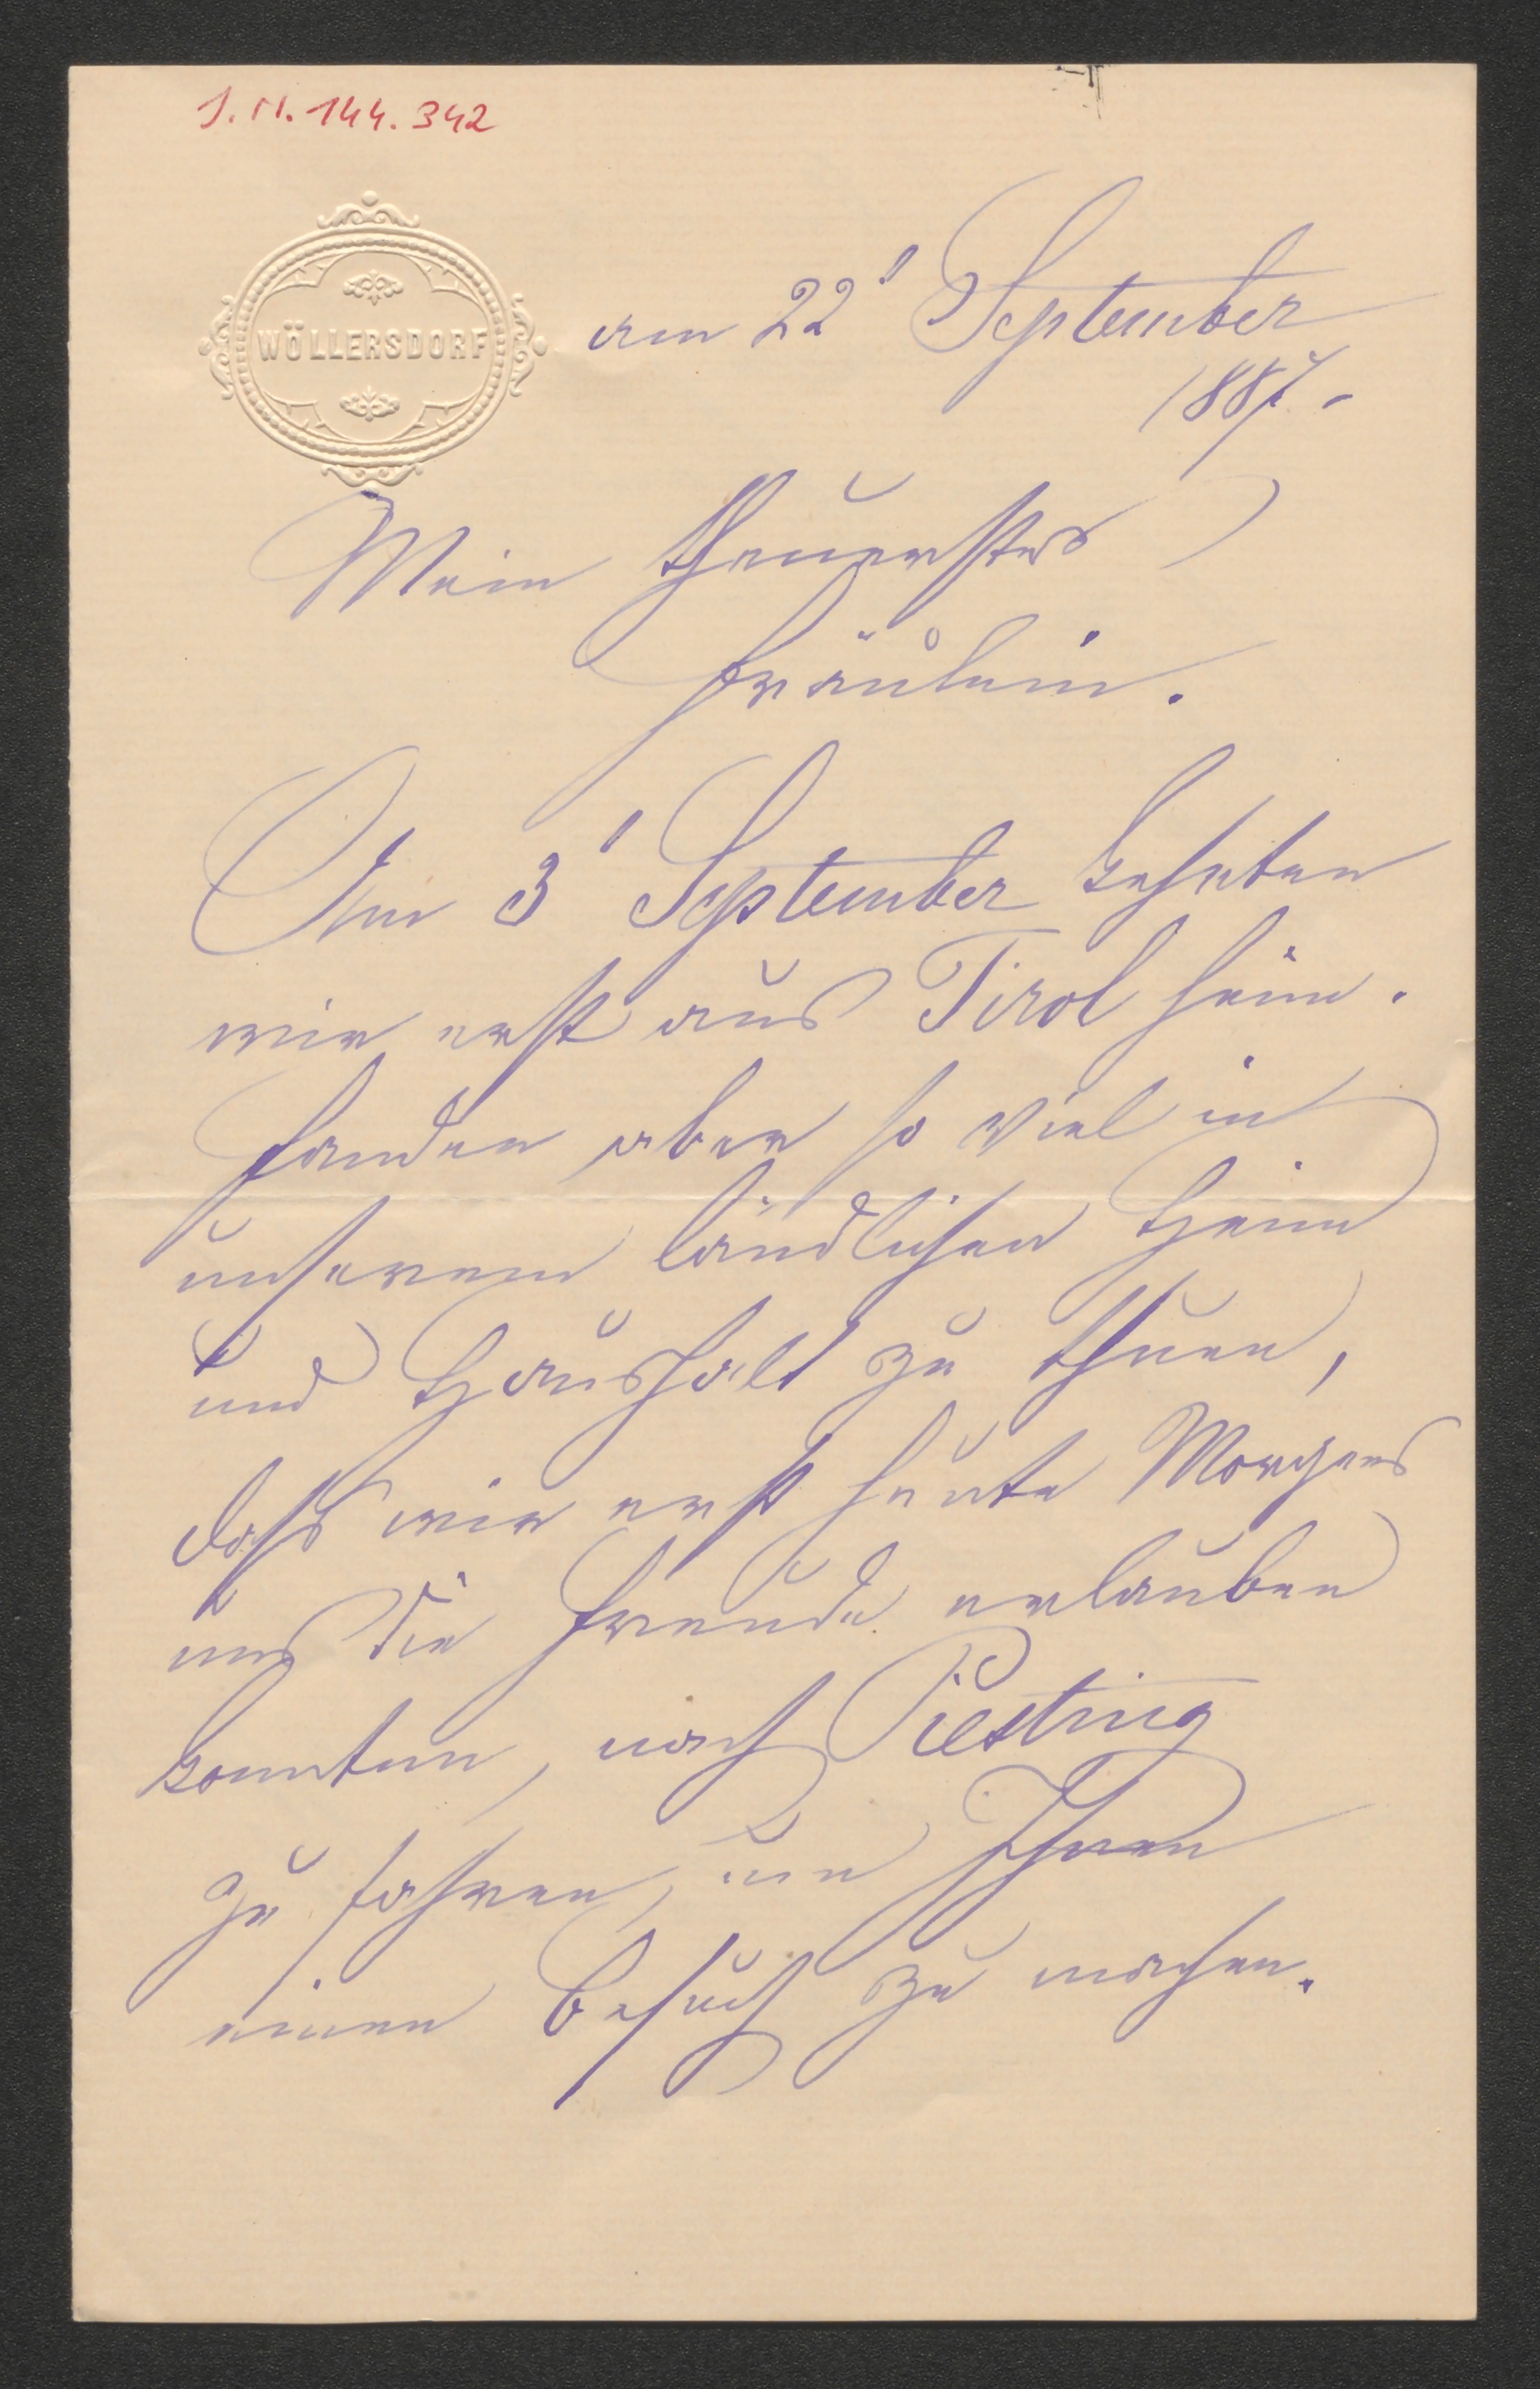 J.N. 144.342
WÖLLERSDORF
am 22' September
1887.-
Mein theuerstes
Fräulein.
Am 3' September kehrten
wir erst aus Tirol heim.
fanden aber so viel in
unserem ländlichen Heim
und Haushalt zu thuen,
dass wir erst heute Morgens
uns die Freude erlauben
konnten, nach Piesting
zu fahren, um Ihnen
einen Besuch zu machen.